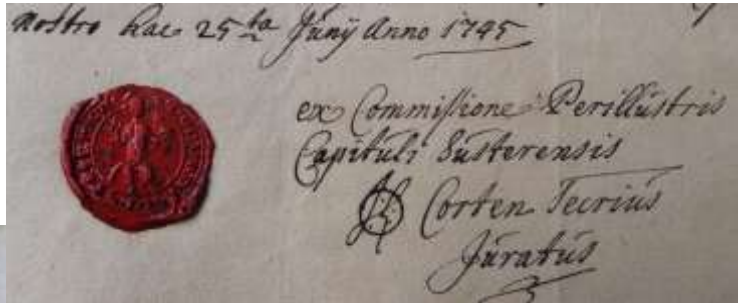 nostro hac 25ta Junij Anno 1745
ex Commissione Perillustris
Capituli Susterensis
Corten Secrius
Juratus